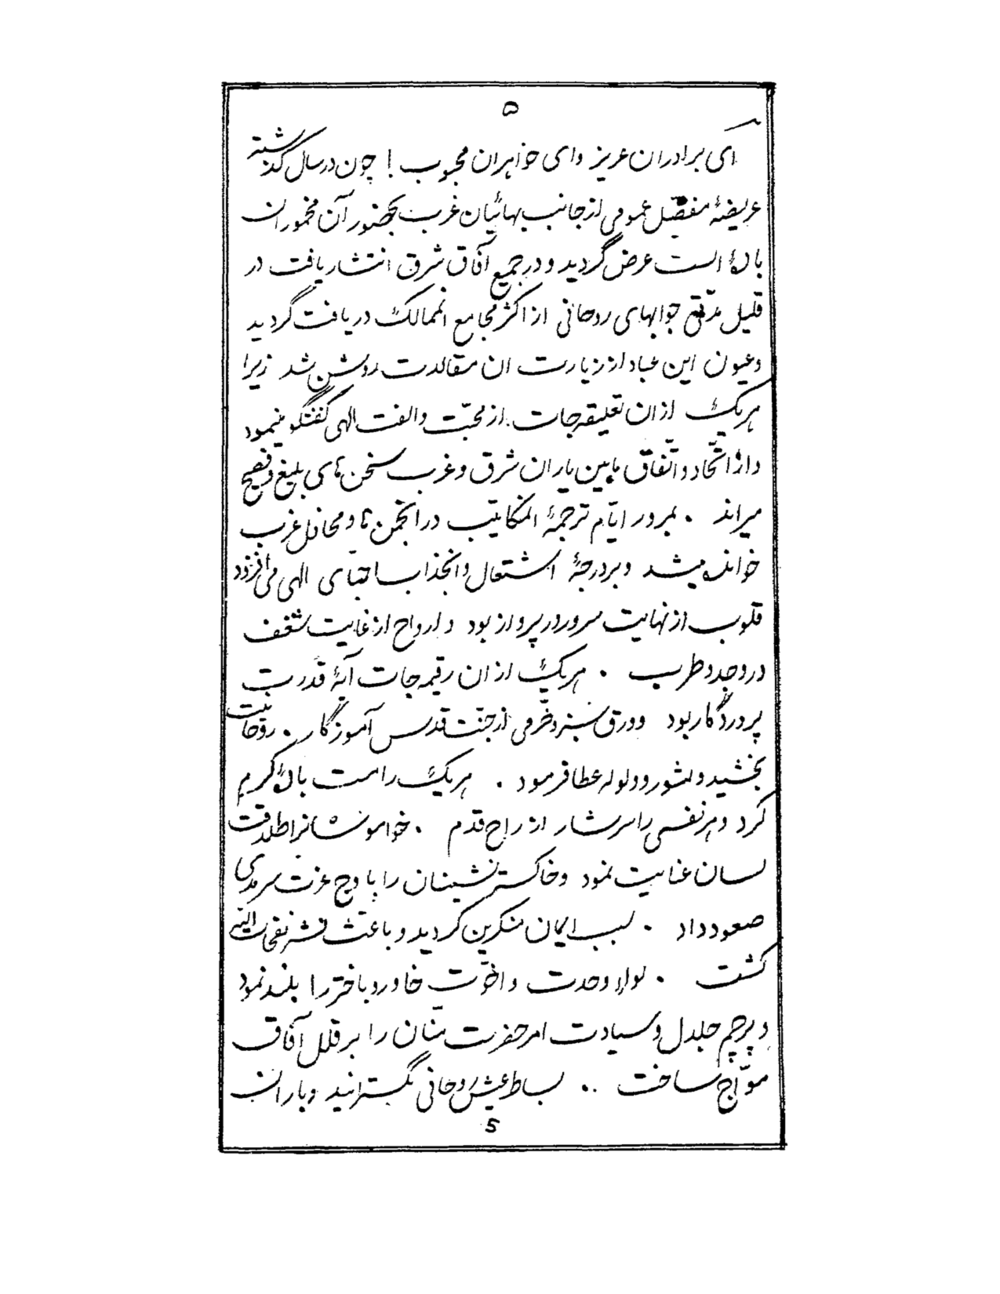 ۵
ای برادران عزیز و ای خواهران محبوب ! چون در سال گذشته
عریضهٔ مفصّل عمومی از جانب بهائیان غرب بحضور آن مخموران
بادهٔ الست عرض گردید و در جمیع آفاق شرق انتشار یافت در
قلیل مدّتی جوابهای روحانی از اکثر مجامع انممالک دریافت گردید
و عیون این عباد از زیارت ان مقالات روشن شد زیرا
هریک از ان تعلیقه جات از محبّت و الفت الهی گفتگو مینمود
و از اتّحاد و اتّفاق مابین یاران شرق و غرب سخن های بلیغ و فصیح
میراند . بمرور ایّام ترجمهٔ انمکاتیب در انجمن ها و محافل غرب
خوانده میشد و بر درجهٔ اشتعال و انجذاب احبّای الهی می افزود
قلوب از نهایت سرور در پرواز بود و ارواح از غایت شغف
در وجد و طرب . هریک از ان رقیمه جات آیهٔ قدرت
پروردگار بود و ورق سبز و خرّمی از جنّت قدس آموزگار . روحانیت
بخشید و شور و ولوله عطا فرمود . هریک را مست بادهٔ کرم
کرد و هر نفسی را سرشار از راح قدم . خواموشانرا طلاقت
لسان عنایت نمود و خاکستر نشینان را باوج عزت سرمدی
صعود داد . سبب ایمان منکرین گردید و باعث نشر نفحات الهیّه
گشت . لواء وحدت و اخوّت خاور و باختر را بلند نمود
و پرچم جلال و سیادت امر حضرت منّان را بر قلل آفاق
موّاج ساخت .. بساط عیش روحانی گسترانید و باران
5